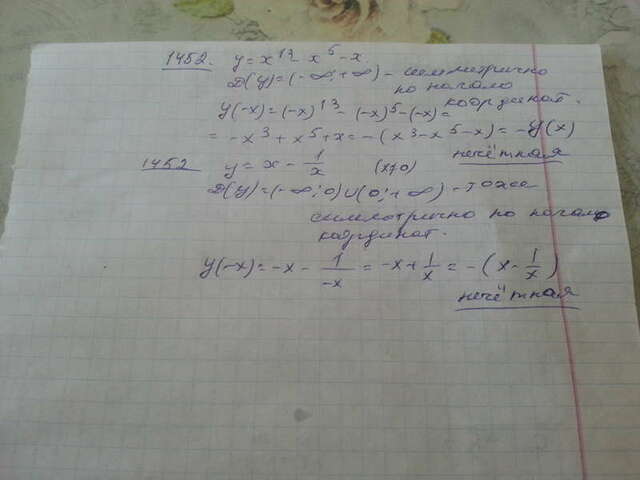 1452. y = x¹³ - x⁵ - x
D(y) = (-∞; +∞) - симметрично
по начало
координат.
y(-x) = (-x)¹³ - (-x)⁵ - (-x) =
= -x³ + x⁵ + x = -(x³ - x⁵ - x) = -y(x)
нечётная
1452 y = x - 1/x (x≠0)
D(y) = (-∞; 0) ∪ (0; +∞) - тоже
симметрично по начало
координат.
y(-x) = -x - 1/-x = -x + 1/x = -(x - 1/x)
нечётная